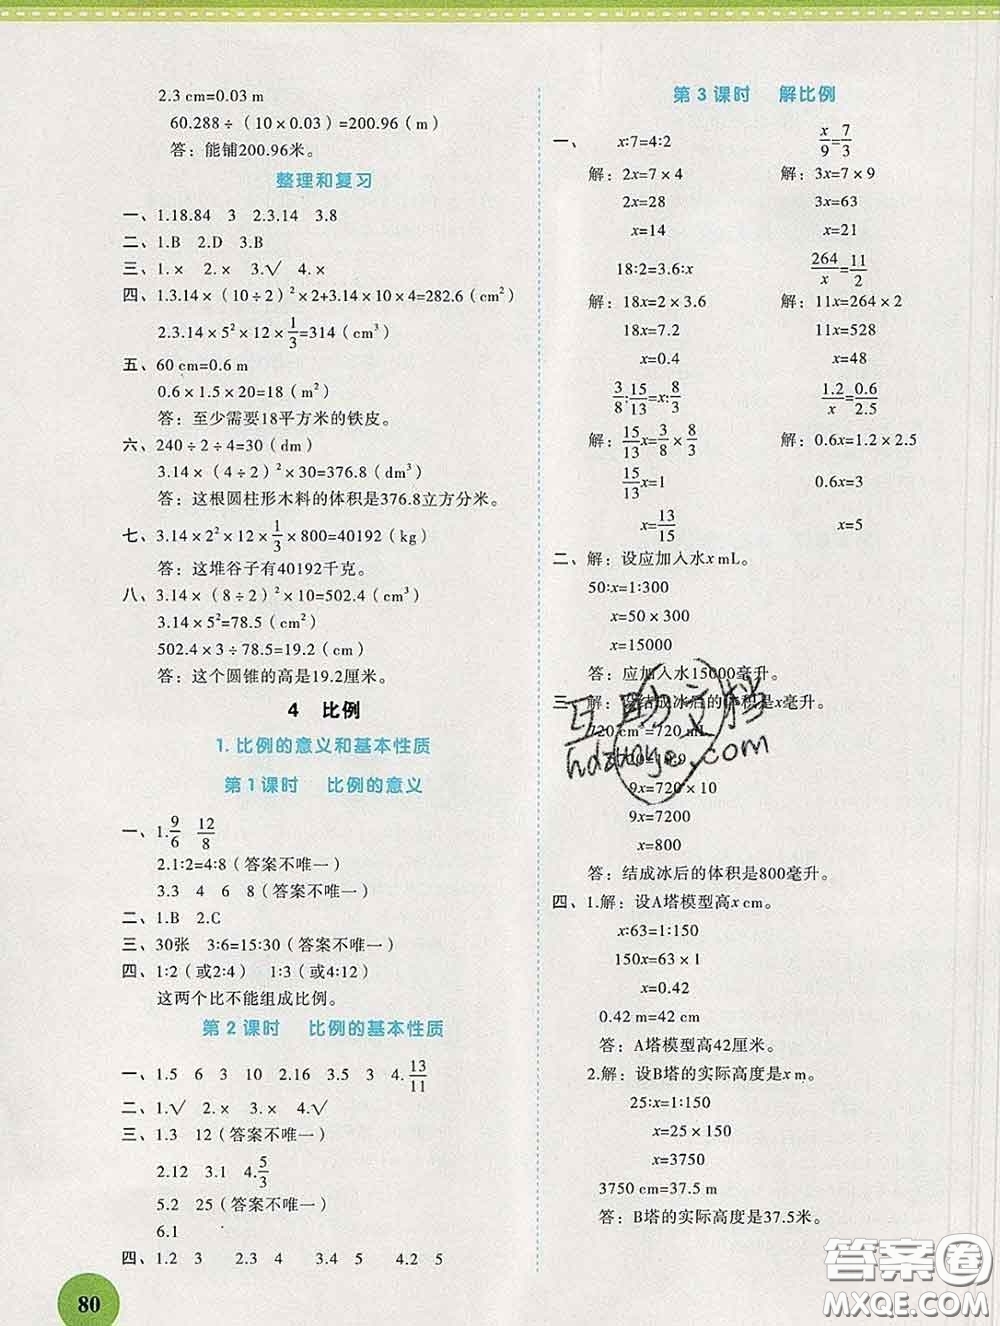 2.3 cm=0.03 m
60.288÷(10×0.03)=200.96(m)
答:能铺200.96米。
整理和复习
一、1.18.84 3 2.3.14 3.8
二、1.B 2.D 3.B
三、1.× 2.× 3.√ 4.×
四、1.3.14×(10÷2)²×2+3.14×10×4=282.6(cm²)
2.3.14×5²×12×1/3=314(cm³)
五、60 cm=0.6 m
0.6×1.5×20=18(m²)
答:至少需要18平方米的铁皮。
六、240÷2÷4=30(dm)
3.14×(4÷2)²×30=376.8(dm³)
答:这根圆柱形木料的体积是376.8立方分米。
七、3.14×2²×12×1/3×800=40192(kg)
答:这堆谷子有40192千克。
八、3.14×(8÷2)²×10=502.4(cm³)
3.14×5²=78.5(cm²)
502.4×3÷78.5=19.2(cm)
答:这个圆锥的高是19.2厘米。
4 比例
1.比例的意义和基本性质
第1课时 比例的意义
一、1.9/6 12/8
2.1:2=4:8(答案不唯一)
3.3 4 6 8(答案不唯一)
二、1.B 2.C
三、30张 3:6=15:30(答案不唯一)
四、1:2(或2:4) 1:3(或4:12)
这两个比不能组成比例。
第2课时 比例的基本性质
一、1.5 6 3 10 2.16 3.5 3 4.13/11
二、1.√ 2.× 3.× 4.√
三、1.3 12(答案不唯一)
2.12 3.1 4.5/3
5.2 25(答案不唯一)
6.1
四、1.2 3 2.3 4 3.4 5 4.2 5
80
第3课时 解比例
一、 x:7=4:2 x/9=7/3
解:2x=7×4 解:3x=7×9
2x=28 3x=63
x=14 x=21
18:2=3.6:x 264/x=11/2
解:18x=2×3.6 解:11x=264×2
18x=7.2 11x=528
x=0.4 x=48
3/8:15/13=x:8/3 1.2/x=0.6/2.5
解:15/13x=3/8×8/3 解:0.6x=1.2×2.5
15/13x=1 0.6x=3
x=13/15 x=5
二、解:设应加入水x mL。
50:x=1:300
x=50×300
x=15000
答:应加入水15000毫升。
三、解:设结成冰后的体积是x毫升。
720 cm³=720 mL
9x=720×10
9x=7200
x=800
答:结成冰后的体积是800毫升。
四、1.解:设A塔模型高x cm。
x:63=1:150
150x=63×1
x=0.42
0.42 m=42 cm
答:A塔模型高42厘米。
2.解:设B塔的实际高度是x m。
25:x=1:150
x=25×150
x=3750
3750 cm=37.5 m
答:B塔的实际高度是37.5米。
互助文档
hdzuoye.com
答案圈
MXQE.COM